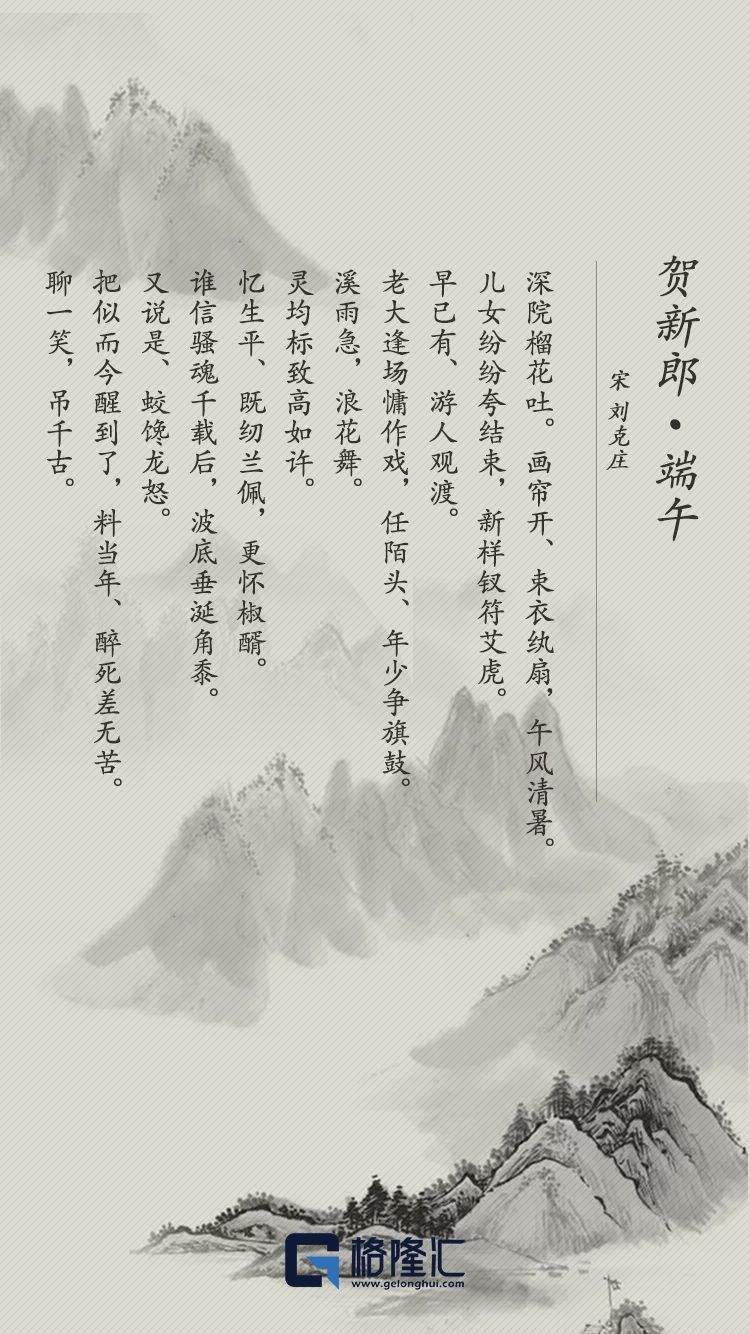 贺新郎·端午
宋 刘克庄
深院榴花吐。画帘开、束衣纨扇，午风清暑。
儿女纷纷夸结束，新样钗符艾虎。
早已有、游人观渡。
老大逢场慵作戏，任陌头、年少争旗鼓。
溪雨急，浪花舞。
灵均标致高如许。
忆生平、既纫兰佩，更怀椒醑。
谁信骚魂千载后，波底垂涎角黍。
又说是、蛟馋龙怒。
把似而今醒到了，料当年、醉死差无苦。
聊一笑，吊千古。
格隆汇
www.gelonghui.com